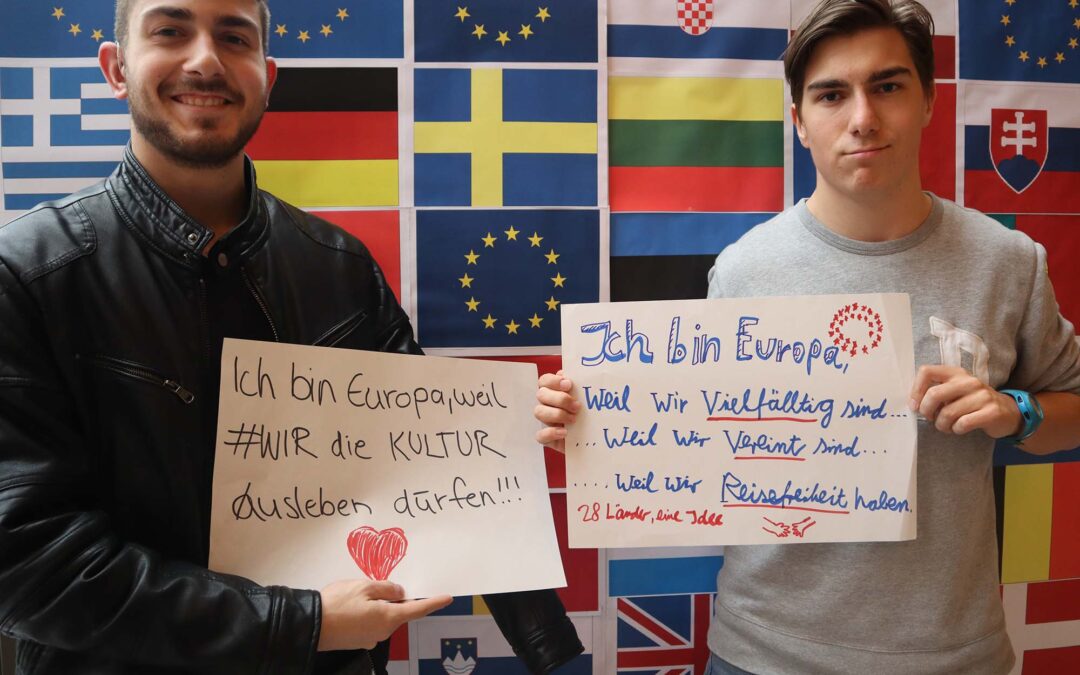 Ich bin Europa, weil
#WIR die KULTUR
ausleben dürfen!!!
Ich bin Europa,
Weil wir Vielfälltig sind...
... Weil wir Vereint sind...
.... Weil wir Reisefreiheit haben.
28 Länder, eine Idee